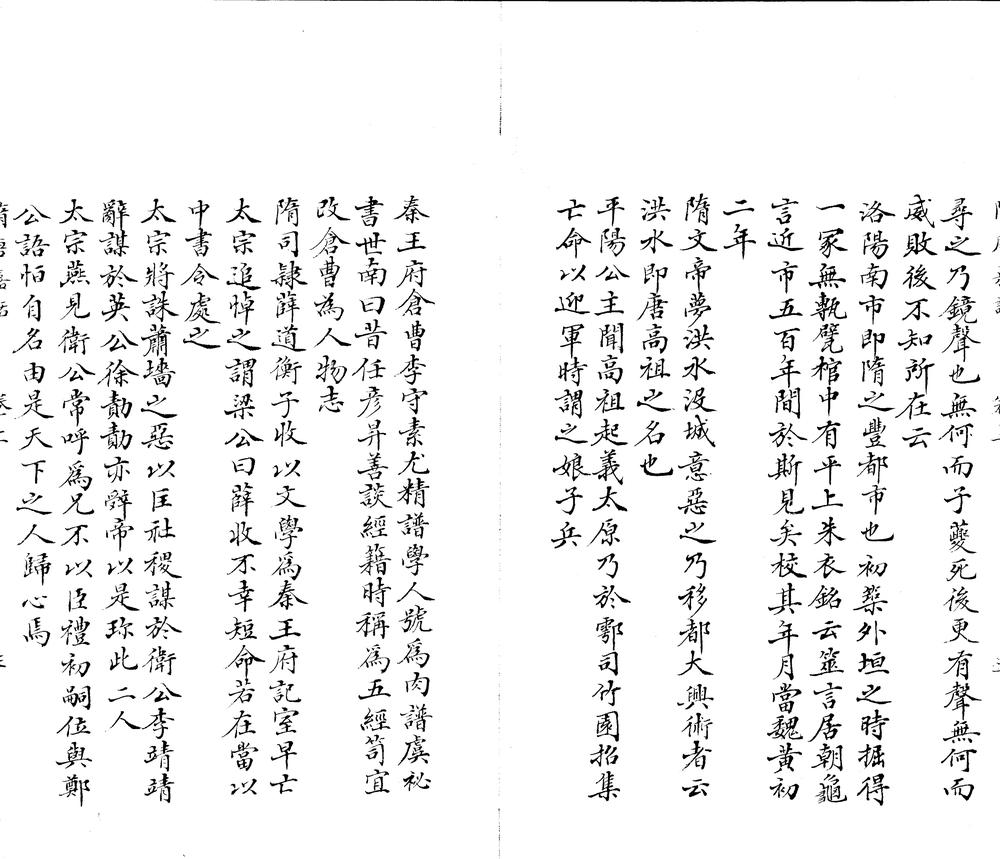 尋之乃鏡聲也無何而子夔死後更有聲無何而
威敗後不知所在云
洛陽南市即隋之豐都市也初築外垣之時掘得
一冢無甎甓棺中有平上朱衣銘云筮言居朝龜
言近市五百年間於斯見矣校其年月當魏黃初
二年
隋文帝夢洪水没城意惡之乃移都大興術者云
洪水即唐高祖之名也
平陽公主聞高祖起義太原乃於鄠司竹園招集
亡命以迎軍時謂之娘子兵
秦王府倉曹李守素尤精譜學人號為肉譜虞祕
書世南曰昔任彦昇善談經籍時稱為五經笥宜
改倉曹為人物志
隋司隸薛道衡子收以文學為秦王府記室早亡
太宗追悼之謂梁公曰薛收不幸短命若在當以
中書令處之
太宗將誅蕭墻之惡以匡社稷謀於衛公李靖靖
辭謀於英公徐勣勣亦辭帝以是珎此二人
太宗燕見衛公常呼為兄不以臣禮初嗣位與鄭
公語怕自名由是天下之人歸心焉